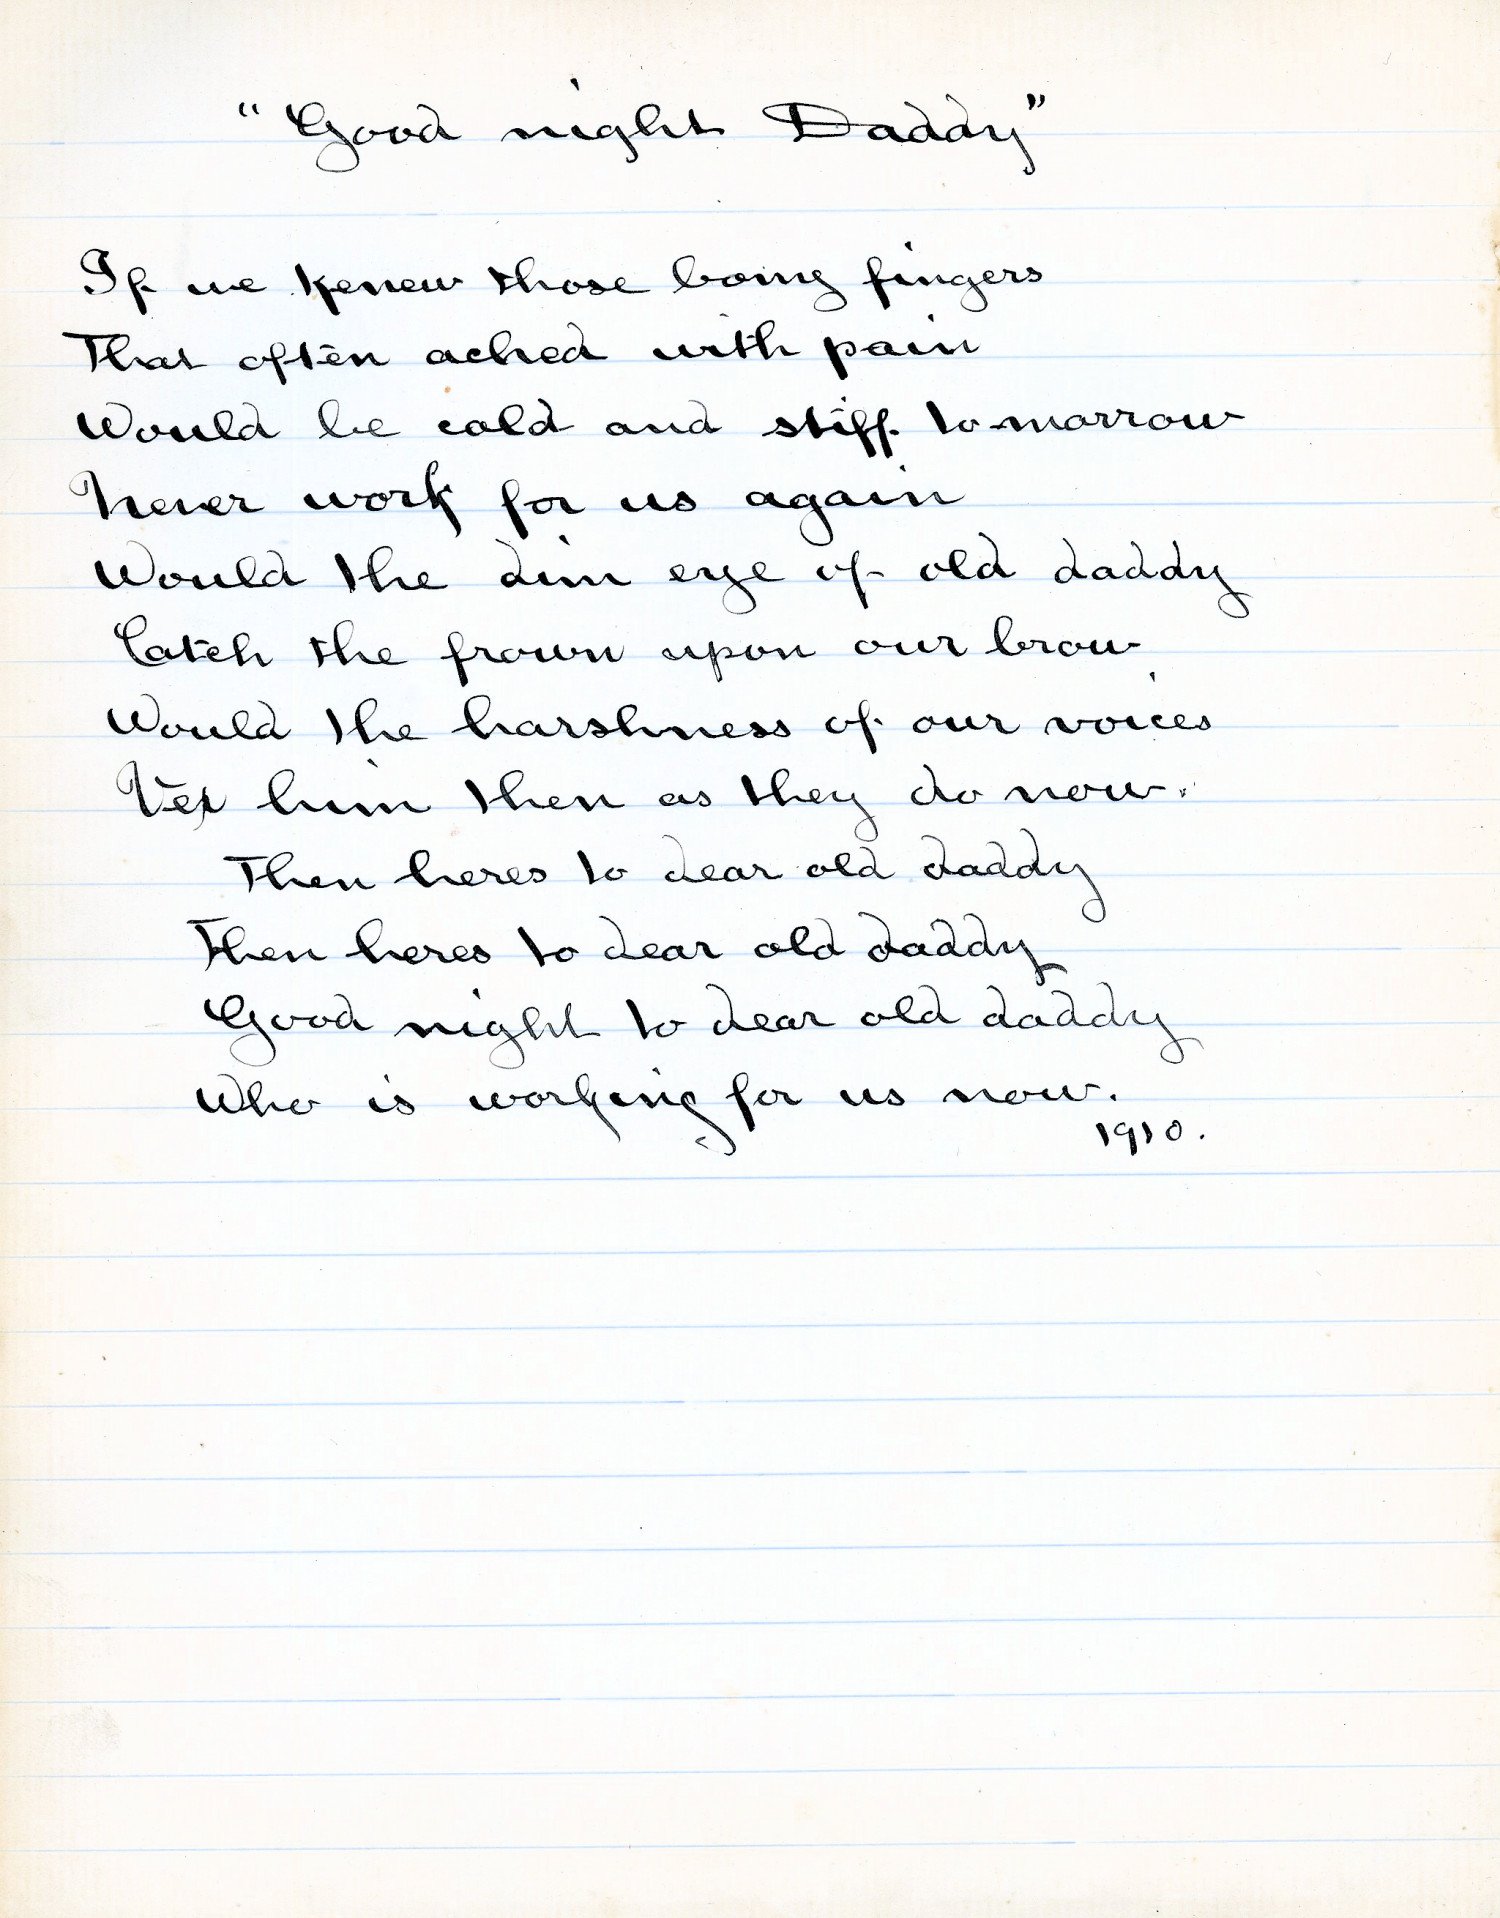 "Good night Daddy"
If we kenew those bony fingers
That often ached with pain
Would be cold and stiff to-morrow
Never work for us again
Would the dim eye of old daddy
Catch the frown upon our brow
Would the harshness of our voices
Vex him then as they do now.
Then heres to dear old daddy
Then heres to dear old daddy
Good night to dear old daddy
Who is working for us now.
1910.